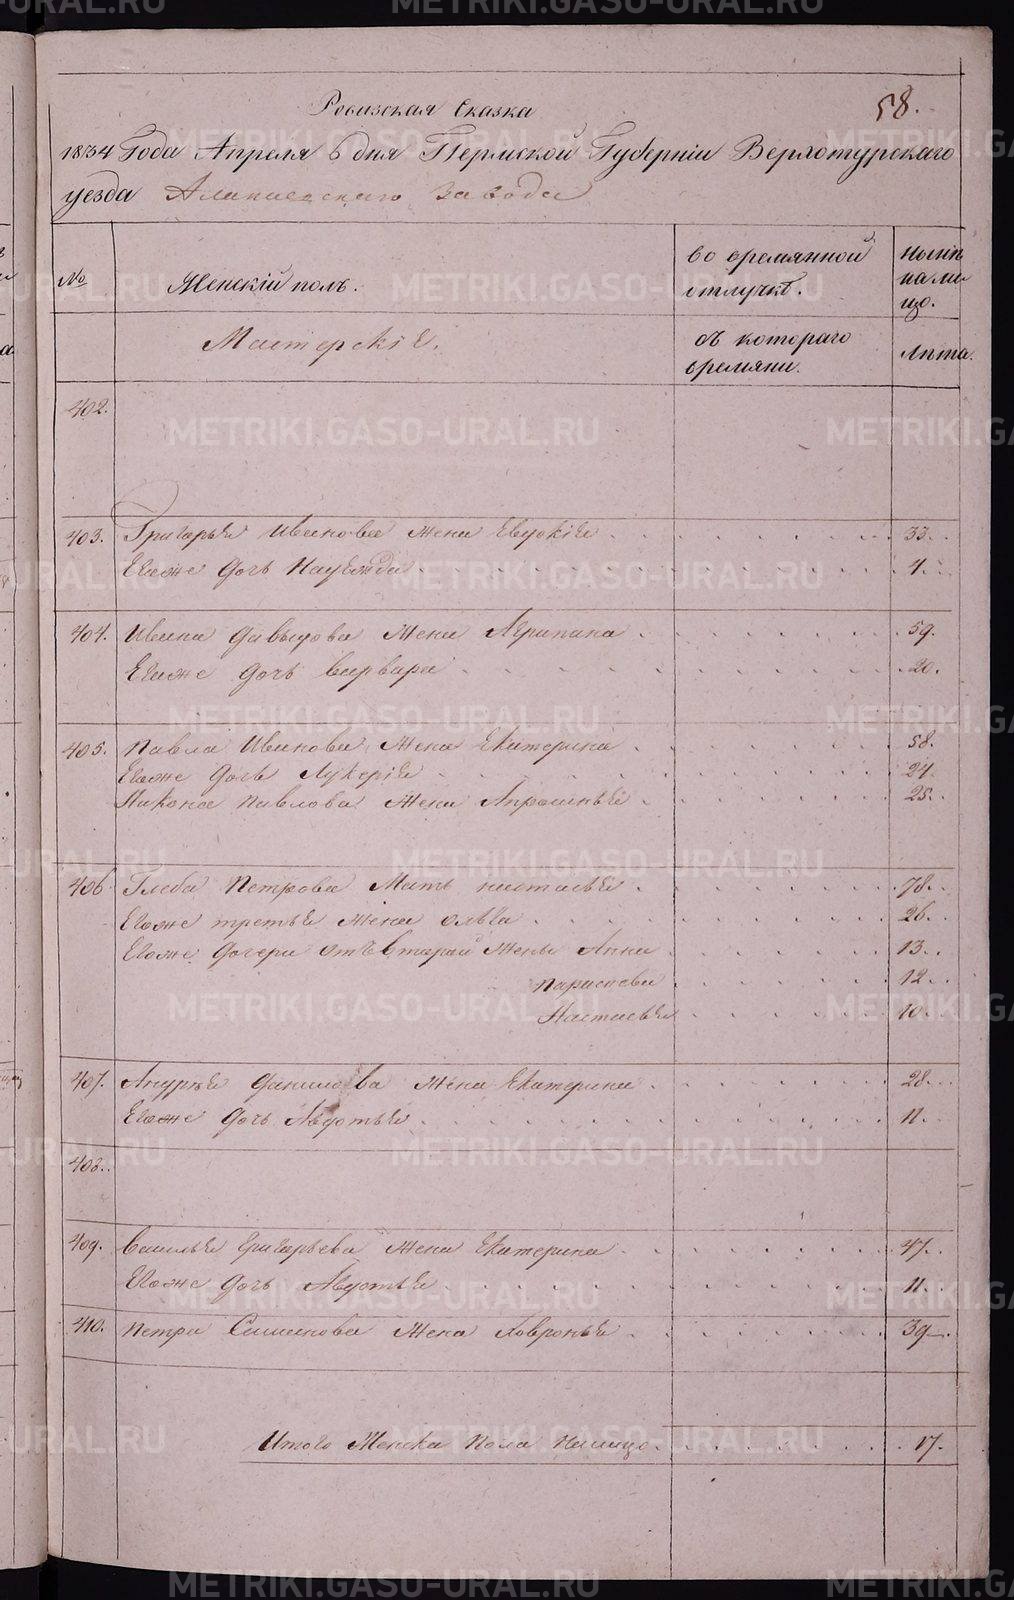 58.
Ревизская Сказка
1834 Года Апреля 6 дня Пермской Губерніи Верхотурскаго
уезда Алапаевскаго Завода
№ Женскій полъ. во времянной отлучкѣ. ныне на лицо.
Мастерскіе. съ котораго времяни. лѣта.
402.
403. Григорья Иванова жена Евдокія 33.
Егоже дочь Надежда
404. Ивана Давыдова жена Агрипина 59.
Егоже дочь Варвара 20.
405. Павла Иванова жена Екатерина 58.
Егоже дочь Лукерія
Никона Павлова жена Апросинья 25.
406. Глеба Петрова мать настасья 78.
Егоже третья жена ольга 26.
Егоже дочери отъ второй жены Анна 13.
парасковья 12.
Настасья 10.
407. Андрея Данилова жена Екатерина 28.
Егоже дочь Авдотья 11.
408.
409. Василья Григорьева жена Екатерина 47.
Егоже дочь Авдотья 11.
410. Петра Симанова жена Ховронья 39.
Итого Женска Пола Налицо 17.
METRIKI.GASO-URAL.RU